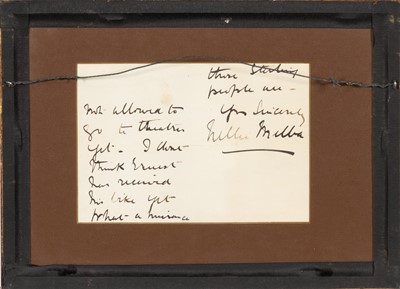 not allowed to
go to theatres
yet - I dont
think Ernest
has received
his like yet
What a nuisance
those Sterling
people are -
Yrs Sincerely
Nellie Melba